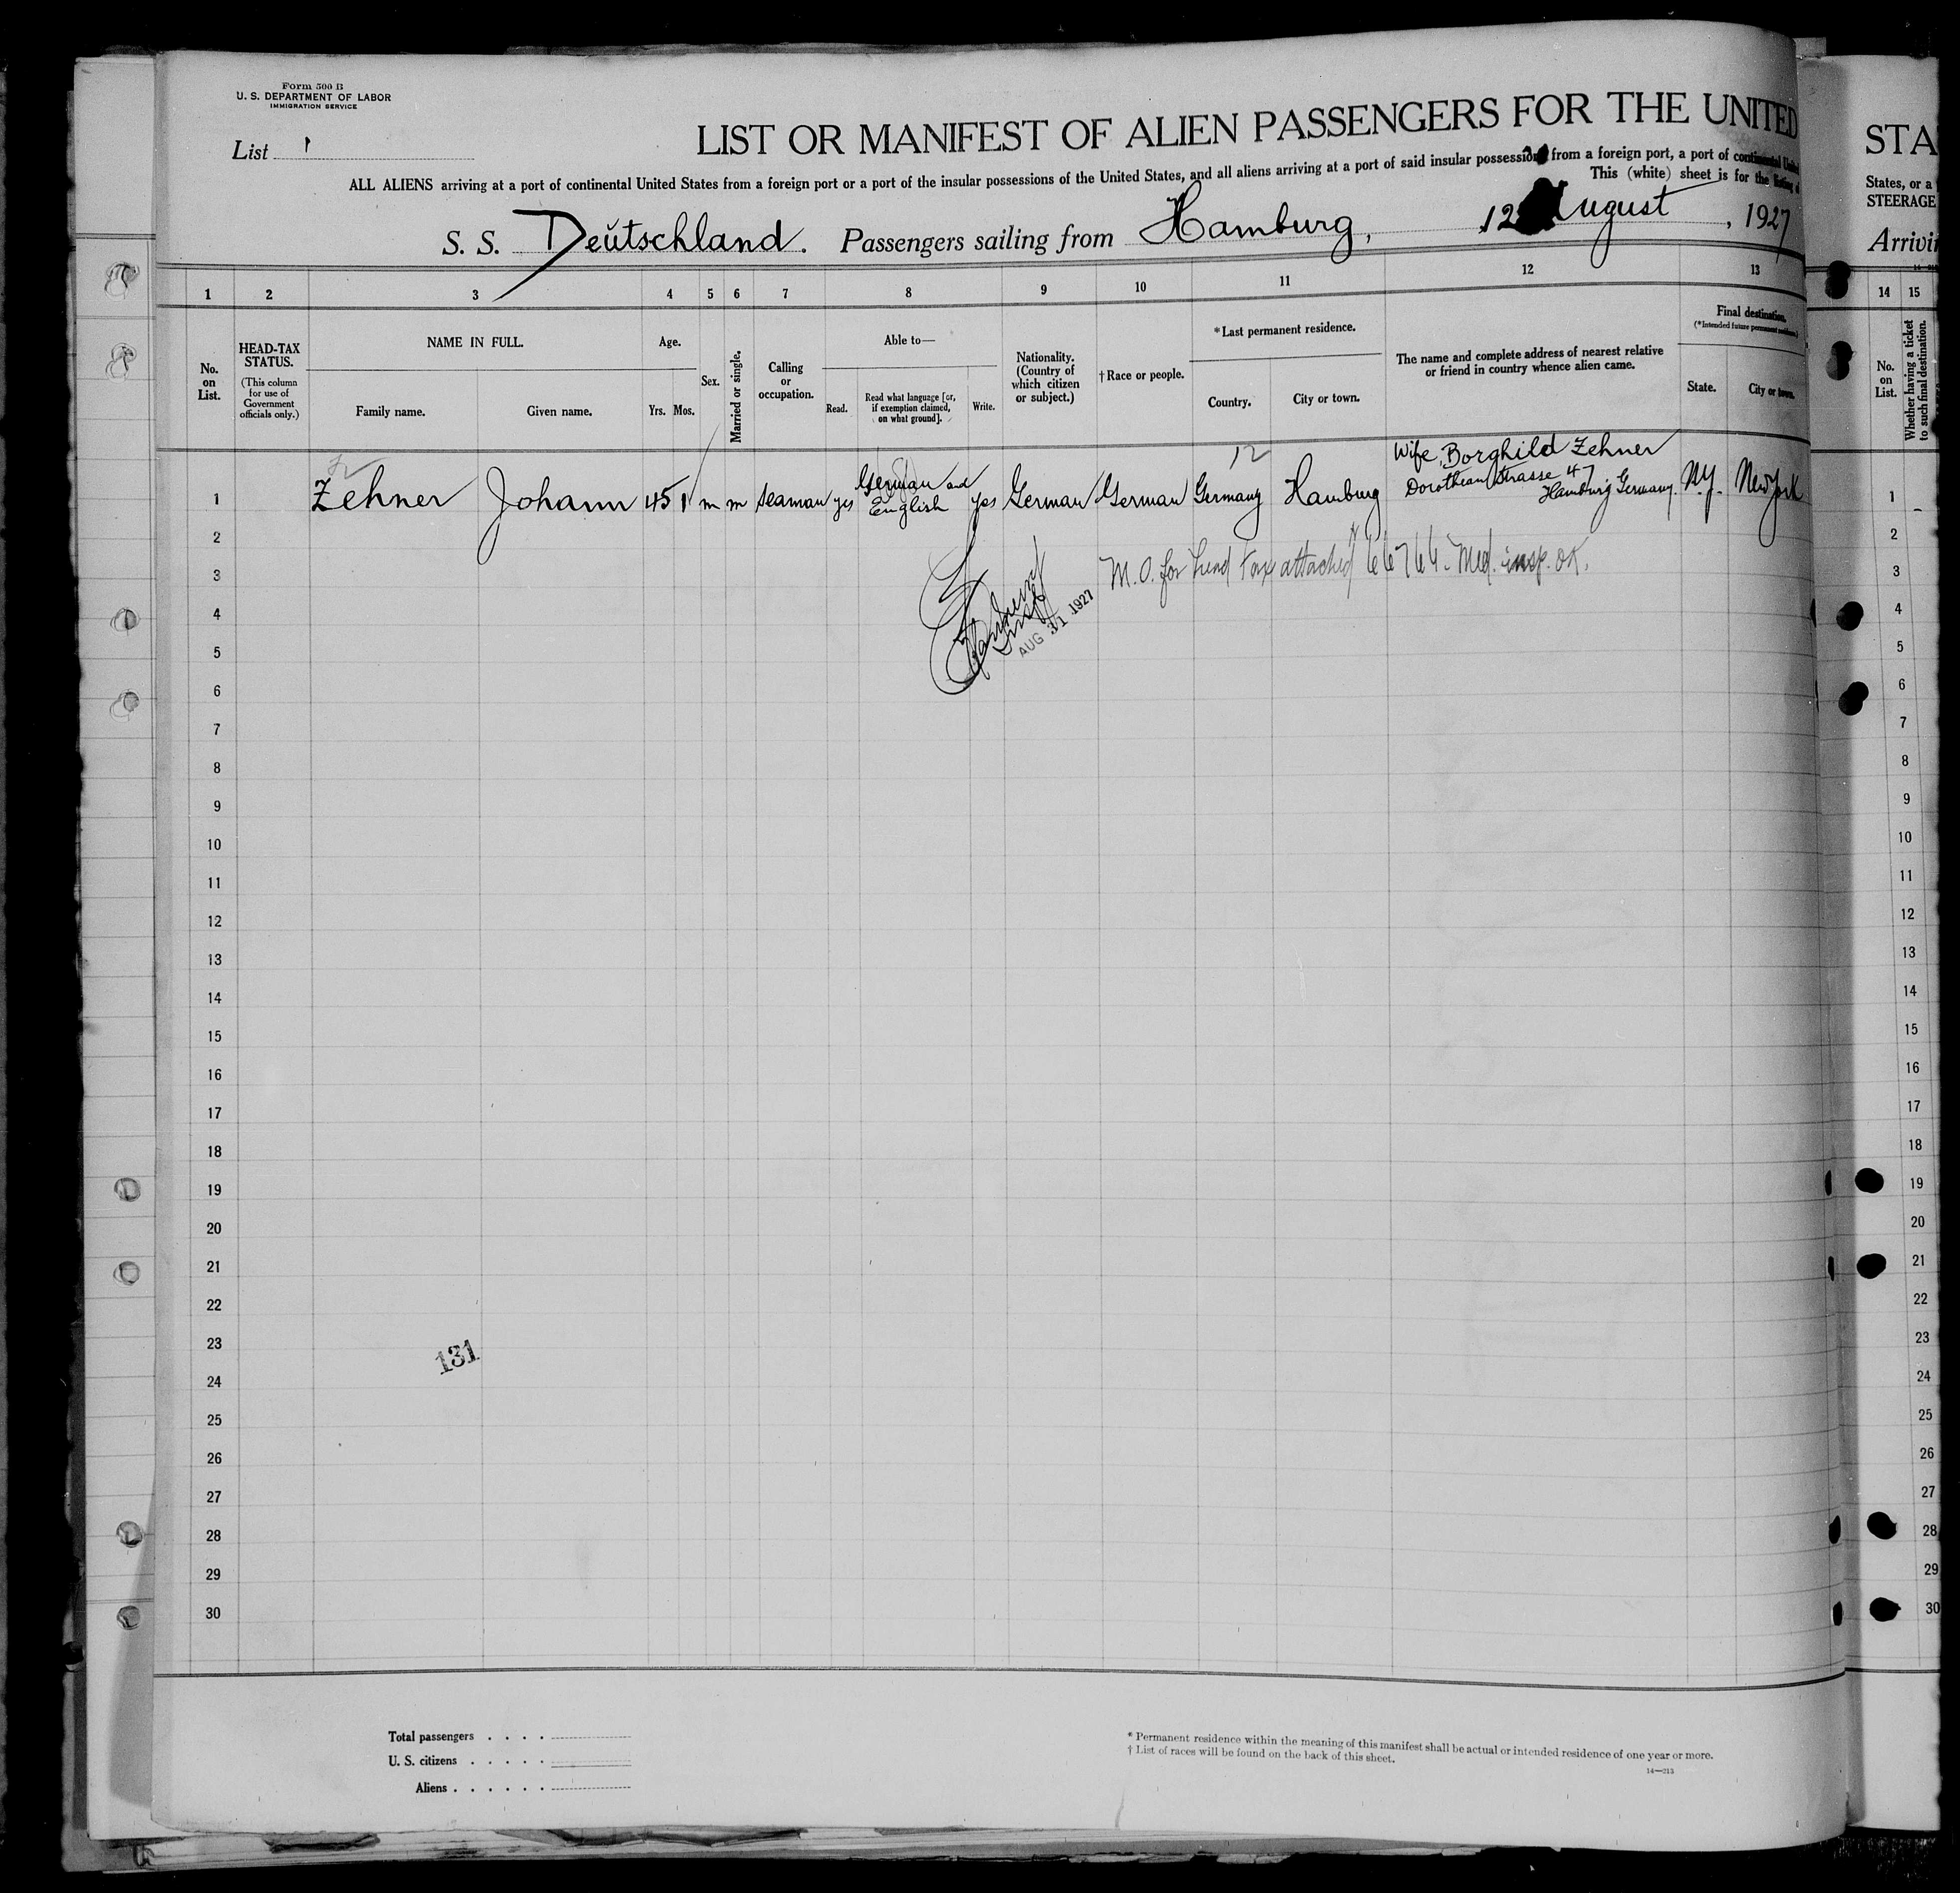 Form 500 B
U. S. DEPARTMENT OF LABOR
IMMIGRATION SERVICE
List 1
LIST OR MANIFEST OF ALIEN PASSENGERS FOR THE UNITED
ALL ALIENS arriving at a port of continental United States from a foreign port or a port of the insular possessions of the United States, and all aliens arriving at a port of said insular possessions from a foreign port, a port of continental
This (white) sheet is for the listing
S. S. Deutschland. Passengers sailing from Hamburg, 12 August, 1927
STA
States, or a
STEERAGE
Arrivi
1 2 3 4 5 6 7 8 9 10 11 12 13
14 15
No. on List.
HEAD-TAX STATUS.
(This column for use of Government officials only.)
NAME IN FULL.
Family name. Given name.
Age.
Yrs. Mos.
Sex.
Married or single.
Calling or occupation.
Able to—
Read. Read what language [or, if exemption claimed, on what ground]. Write.
Nationality. (Country of which citizen or subject.)
†Race or people.
*Last permanent residence.
Country. City or town.
The name and complete address of nearest relative or friend in country whence alien came.
Final destination.
(*Intended future permanent residence.)
State. City or town.
No. on List.
Whether having a ticket to such final destination.
12
1 Zehner Johann 45 1 m m seaman yes German and English yes German German Germany Hamburg Wife, Borghild Zehner Dorothean Strasse 47 Hamburg Germany. N.Y. New York
M. O. for head tax attached 66764. Med. insp. OK.
Insp
AUG 31 1927
2
3
4
5
6
7
8
9
10
11
12
13
14
15
16
17
18
19
20
21
22
23
131
24
25
26
27
28
29
30
1
2
3
4
5
6
7
8
9
10
11
12
13
14
15
16
17
18
19
20
21
22
23
24
25
26
27
28
29
30
Total passengers . . . .
U. S. citizens . . . . .
Aliens . . . . . .
* Permanent residence within the meaning of this manifest shall be actual or intended residence of one year or more.
† List of races will be found on the back of this sheet.
14—213